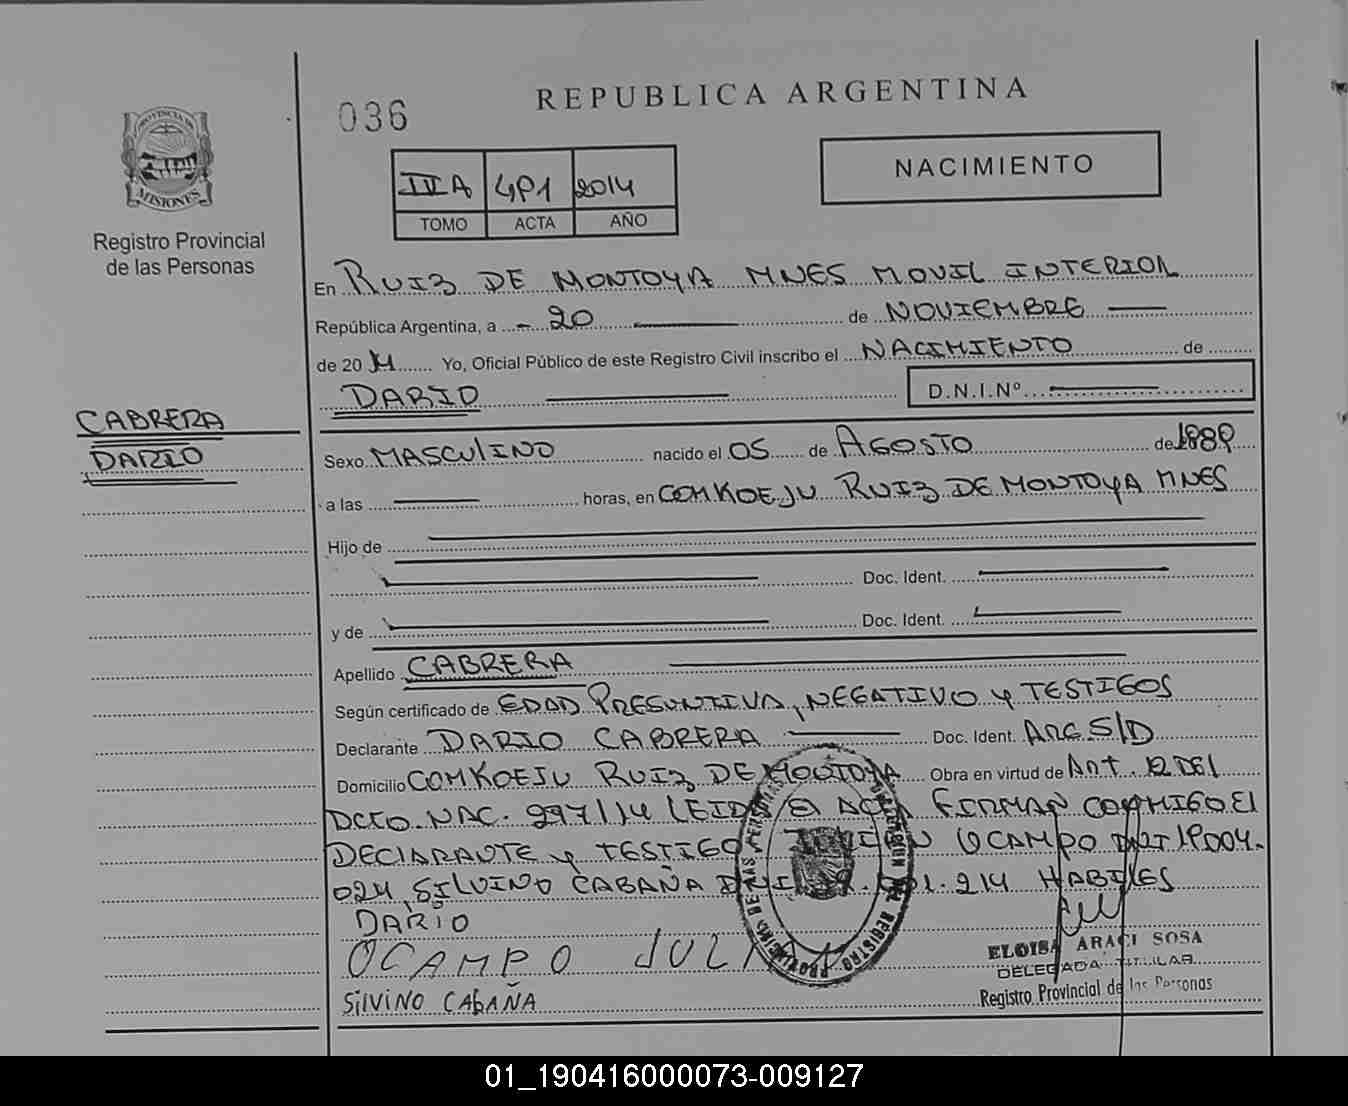 036
REPUBLICA ARGENTINA
PROVINCIA DE
MISIONES
Registro Provincial
de las Personas
NACIMIENTO
2014
TOMO ACTA AÑO
En RUIZ DE MONTOYA MNES MOVIL INTERIOR
República Argentina, a 20 de NOVIEMBRE
de 2014 Yo, Oficial Público de este Registro Civil inscribo el NACIMIENTO de
DARIO D.N.I.Nº
CABRERA
DARIO
Sexo MASCULINO nacido el 05 de AGOSTO de
a las horas, en COMKOEJU RUIZ DE MONTOYA MNES
Hijo de
Doc. Ident.
y de Doc. Ident.
Apellido CABRERA
Según certificado de EDAD PRESUNTIVA, NEGATIVO y TESTIGOS
Declarante DARIO CABRERA Doc. Ident. ARG S/D
Domicilio COMKOEJU RUIZ DE MONTOYA Obra en virtud de Art. 12 DEL
DCTO. NAC. 297/14 LEIDA EL ACTA FIRMAN CONMIGO El
DECLARANTE y TESTIGO OCAMPO
024, SILVINO CABAÑA 214 HABILES
DARIO
OCAMPO
SILVINO CABAÑA
ELOISA ARACI SOSA
DELEGADA TITULAR
Registro Provincial de las Personas
01_190416000073-009127